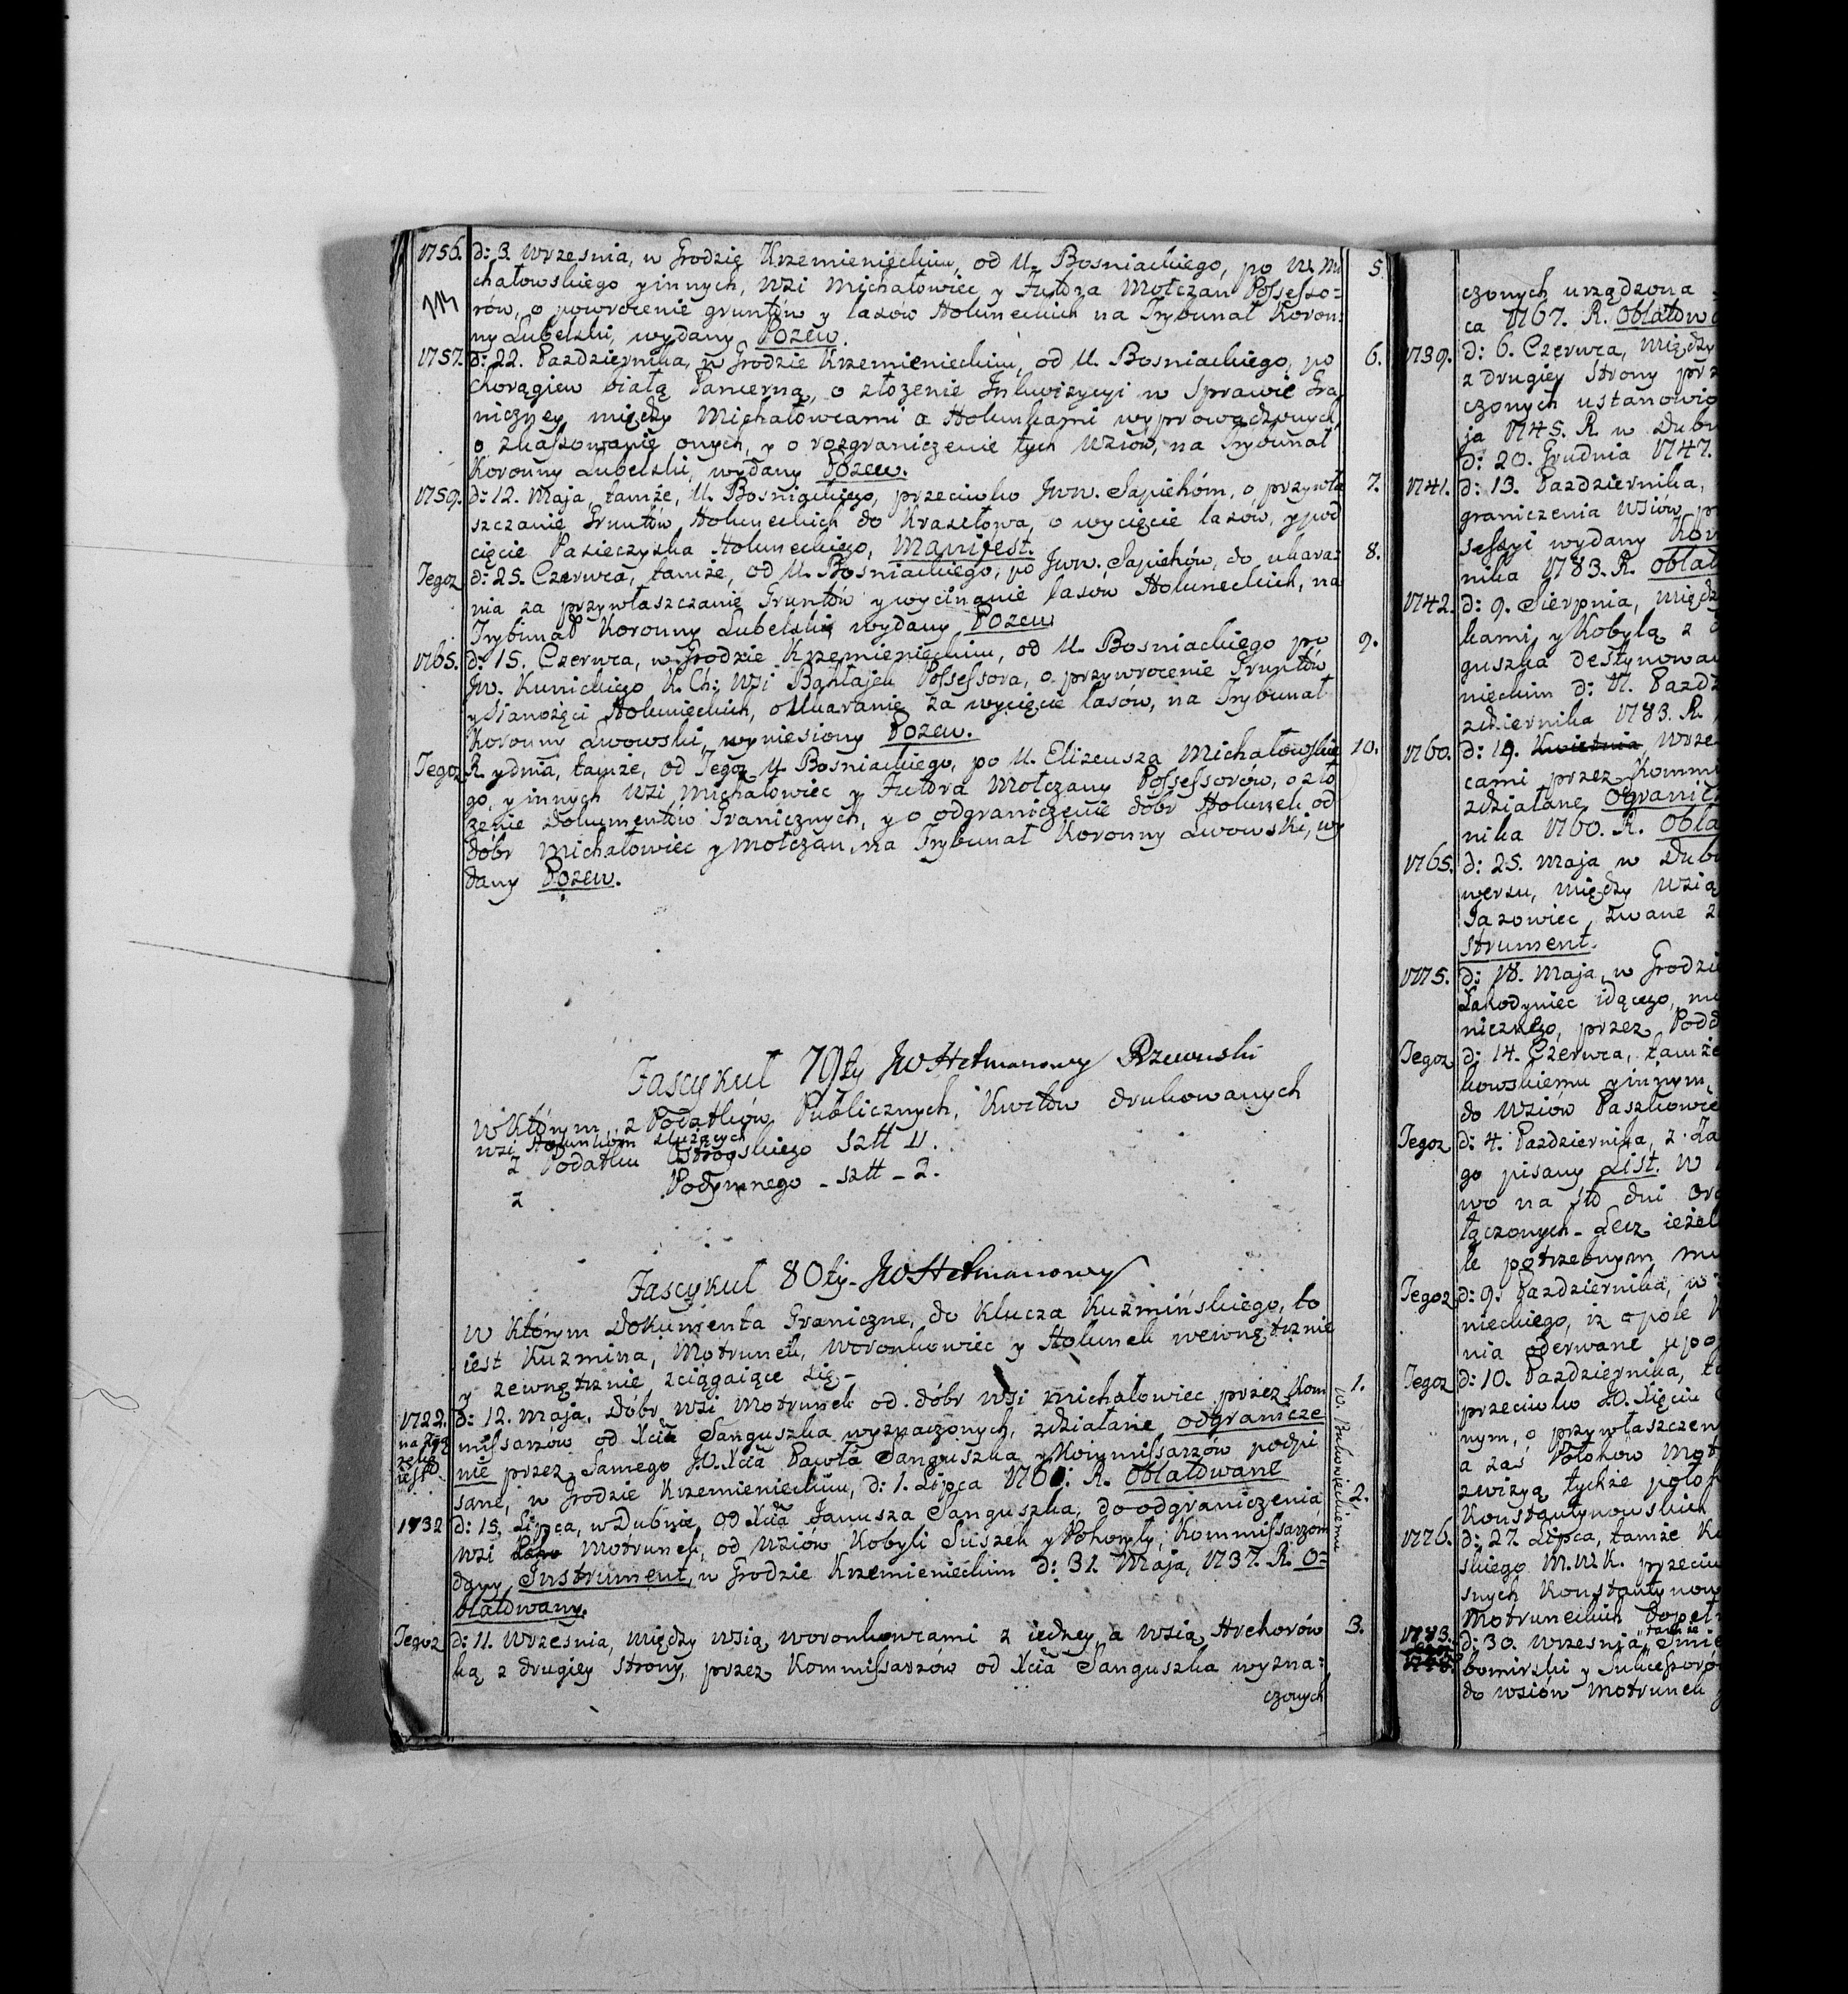 1756. d: 3. Wrzesnia, w Grodzie Krzemienieckim, od U. Bosniackiego, po U. Mi 5.
chałowskiego y innych, Wsi Michałowiec y Futora Mołczan Possesso=
rów, o powrocenie gruntów y lasów Holuneckich na Trybunał Koron:
ny Lubelski, wydany Pozew.
1757. d: 22. Pazdziernika, w Grodzie Krzemienieckim, od U. Bosniackiego, po 6.
Chorągiew białą Pancerną, o złozenie Inkwizycyi w Sprawie Gra
niczney między Michałowcami a Holunkami wyprowadzonych,
o zkassowanie onych, y o rozgraniczenie tych Wsiów, na Trybunał
Koronny Lubelski, wydany Pozew.
1759. d: 12. Maja, tamże, U. Bosniackiego, przeciwko Jww. Sapiehóm, o przywła 7.
szczanie Gruntów Holuneckich do Krasełowa, o wycięcie lasów, y pod
cięcie Pasieczyska Holuneckiego, Manifest.
Tegoz d: 25. Czerwca, tamże, od U. Bosniackiego, po Jww. Sapiehów, do ukara= 8.
nia za przywłaszczanie Gruntów y wycinanie lasów Holuneckich, na
Trybunał Koronny Lubelski wydany Pozew
1765. d: 15. Czerwca, w Grodzie Krzemienieckim, od U. Bosniackiego po 9.
Jw. Kunickiego K. Ch: Wsi Possessora, o przywrocenie Gruntów
y Sianożęci Holunieckich, o Ukaranie za wycięcie lasów, na Trybunał
Koronny Lwowski, wyniesiony Pozew.
Tegoz R. y dnia, tamże, od Tegoz U. Bosniackiego, po U. Elizeusza Michałowskie 10.
go, y innych Wsi Michałowiec y Futora Mołczany Possessorów, o zło
żenie Dokumentów Granicznych, y o odgraniczenie dóbr Holunek od
dóbr Michałowiec y Mołczan, na Trybunał Koronny Lwowski, wy
dany Pozew.
Fascykuł 79ty JW Hetmanowy Rzewuski
W Którym z Podatków Publicznych, Kwitów drukowanych
wsi Holunkom służących
z Podatku Ostrogskiego sztt 11.
z Podymnego - sztt - 2.
Fascykuł 80ty - JW Hetmanowy
W Którym Dokumenta Graniczne, do Klucza Kuzmińskiego, to
iest Kuzmina, Motrunek, Woronkowiec y Holunek wewnętrznie
y zewnętrznie zciągaiące się -
1722. d: 12. Maja, dobr wsi Motrunek od dóbr wsi Michałowiec przez Kom 1.
missarzów od Xcia Sanguszka wyznaczonych, zdziałane odgranicze
nie przez Samego JO. Xcia Pawła Sanguszka y Kommissarzów podpi
sane, w Grodzie Krzemienieckim, d: 1. Lipca R. Oblatowane
1732 d: 15. Lipca, w Dubnie, od Xcia Janusza Sanguszka, do odgraniczenia 2.
wsi Motrunek, od Wsiów Kobyli Suszek y Pohoryły, Kommissarzóm
dany Instrument, w Grodzie Krzemienieckim d: 31. Maja, 1737. R. O=
blatowany.
Tegoz d: 11. Wrzesnia, między wsią Woronkowcami z iedney a wsią Hrehorów 3.
ką z drugiey strony, przez Kommissarzów od Xcia Sanguszka wyzna=
czonych
czonych urządzona
ca 1767. R. Oblatow
1739. d: 6. Czerwca, między
z drugiey strony prz
czonych ustanowio
ja 1745. R. w Dub
d: 20. Grudnia 1747.
1741. d: 13. Pazdziernika,
graniczenia Wsiów, p
sessyi wydany
nika 1783. R. oblat
1742. d: 9. Sierpnia, międz
kami y Kobylą z
guszka destynowa
nieckim d: 11. Pazdz
zdziernika 1783. R.
1760. d: 19. Kwietnia, Wrze
cami przez Kommi
zdziałane Ogranicz
nika 1760. R. Obla
1765. d: 25. Maja w Dub
wersu, między wsią
Jazowiec, zwane z
strument.
1775. d: 18. Maja, w Grodzie
Łakodyniec idącego,
nicznego, przez Podd
Tegoz d: 14. Czerwca, tamże
kowskiemu y innym,
do Wsiów Paszkowie
Tegoz d: 4. Pazdziernika, z Za
go pisany List. w
wo na sto dni
łączonych - Lecz ieżel
le potrzebnym
Tegoz d: 9. Pazdziernika, w
nieckiego, iz o pole
nia oderwane
Tegoz d: 10. Pazdziernika, ta
przeciwko JO. Xięciu
nym, o przywłaszczen
a zaś Połohow Mot
zwizyą tychże poło
Konstantynowskich
1776. d: 27. Lipca, tamże
skiego M. W. K. przeciw
snych Konstantynow
Motruneckich dopeł
1783. d: 30. Wrzesnia, tamże
bomirski y Sukcessoró
do wsiów Motrunek